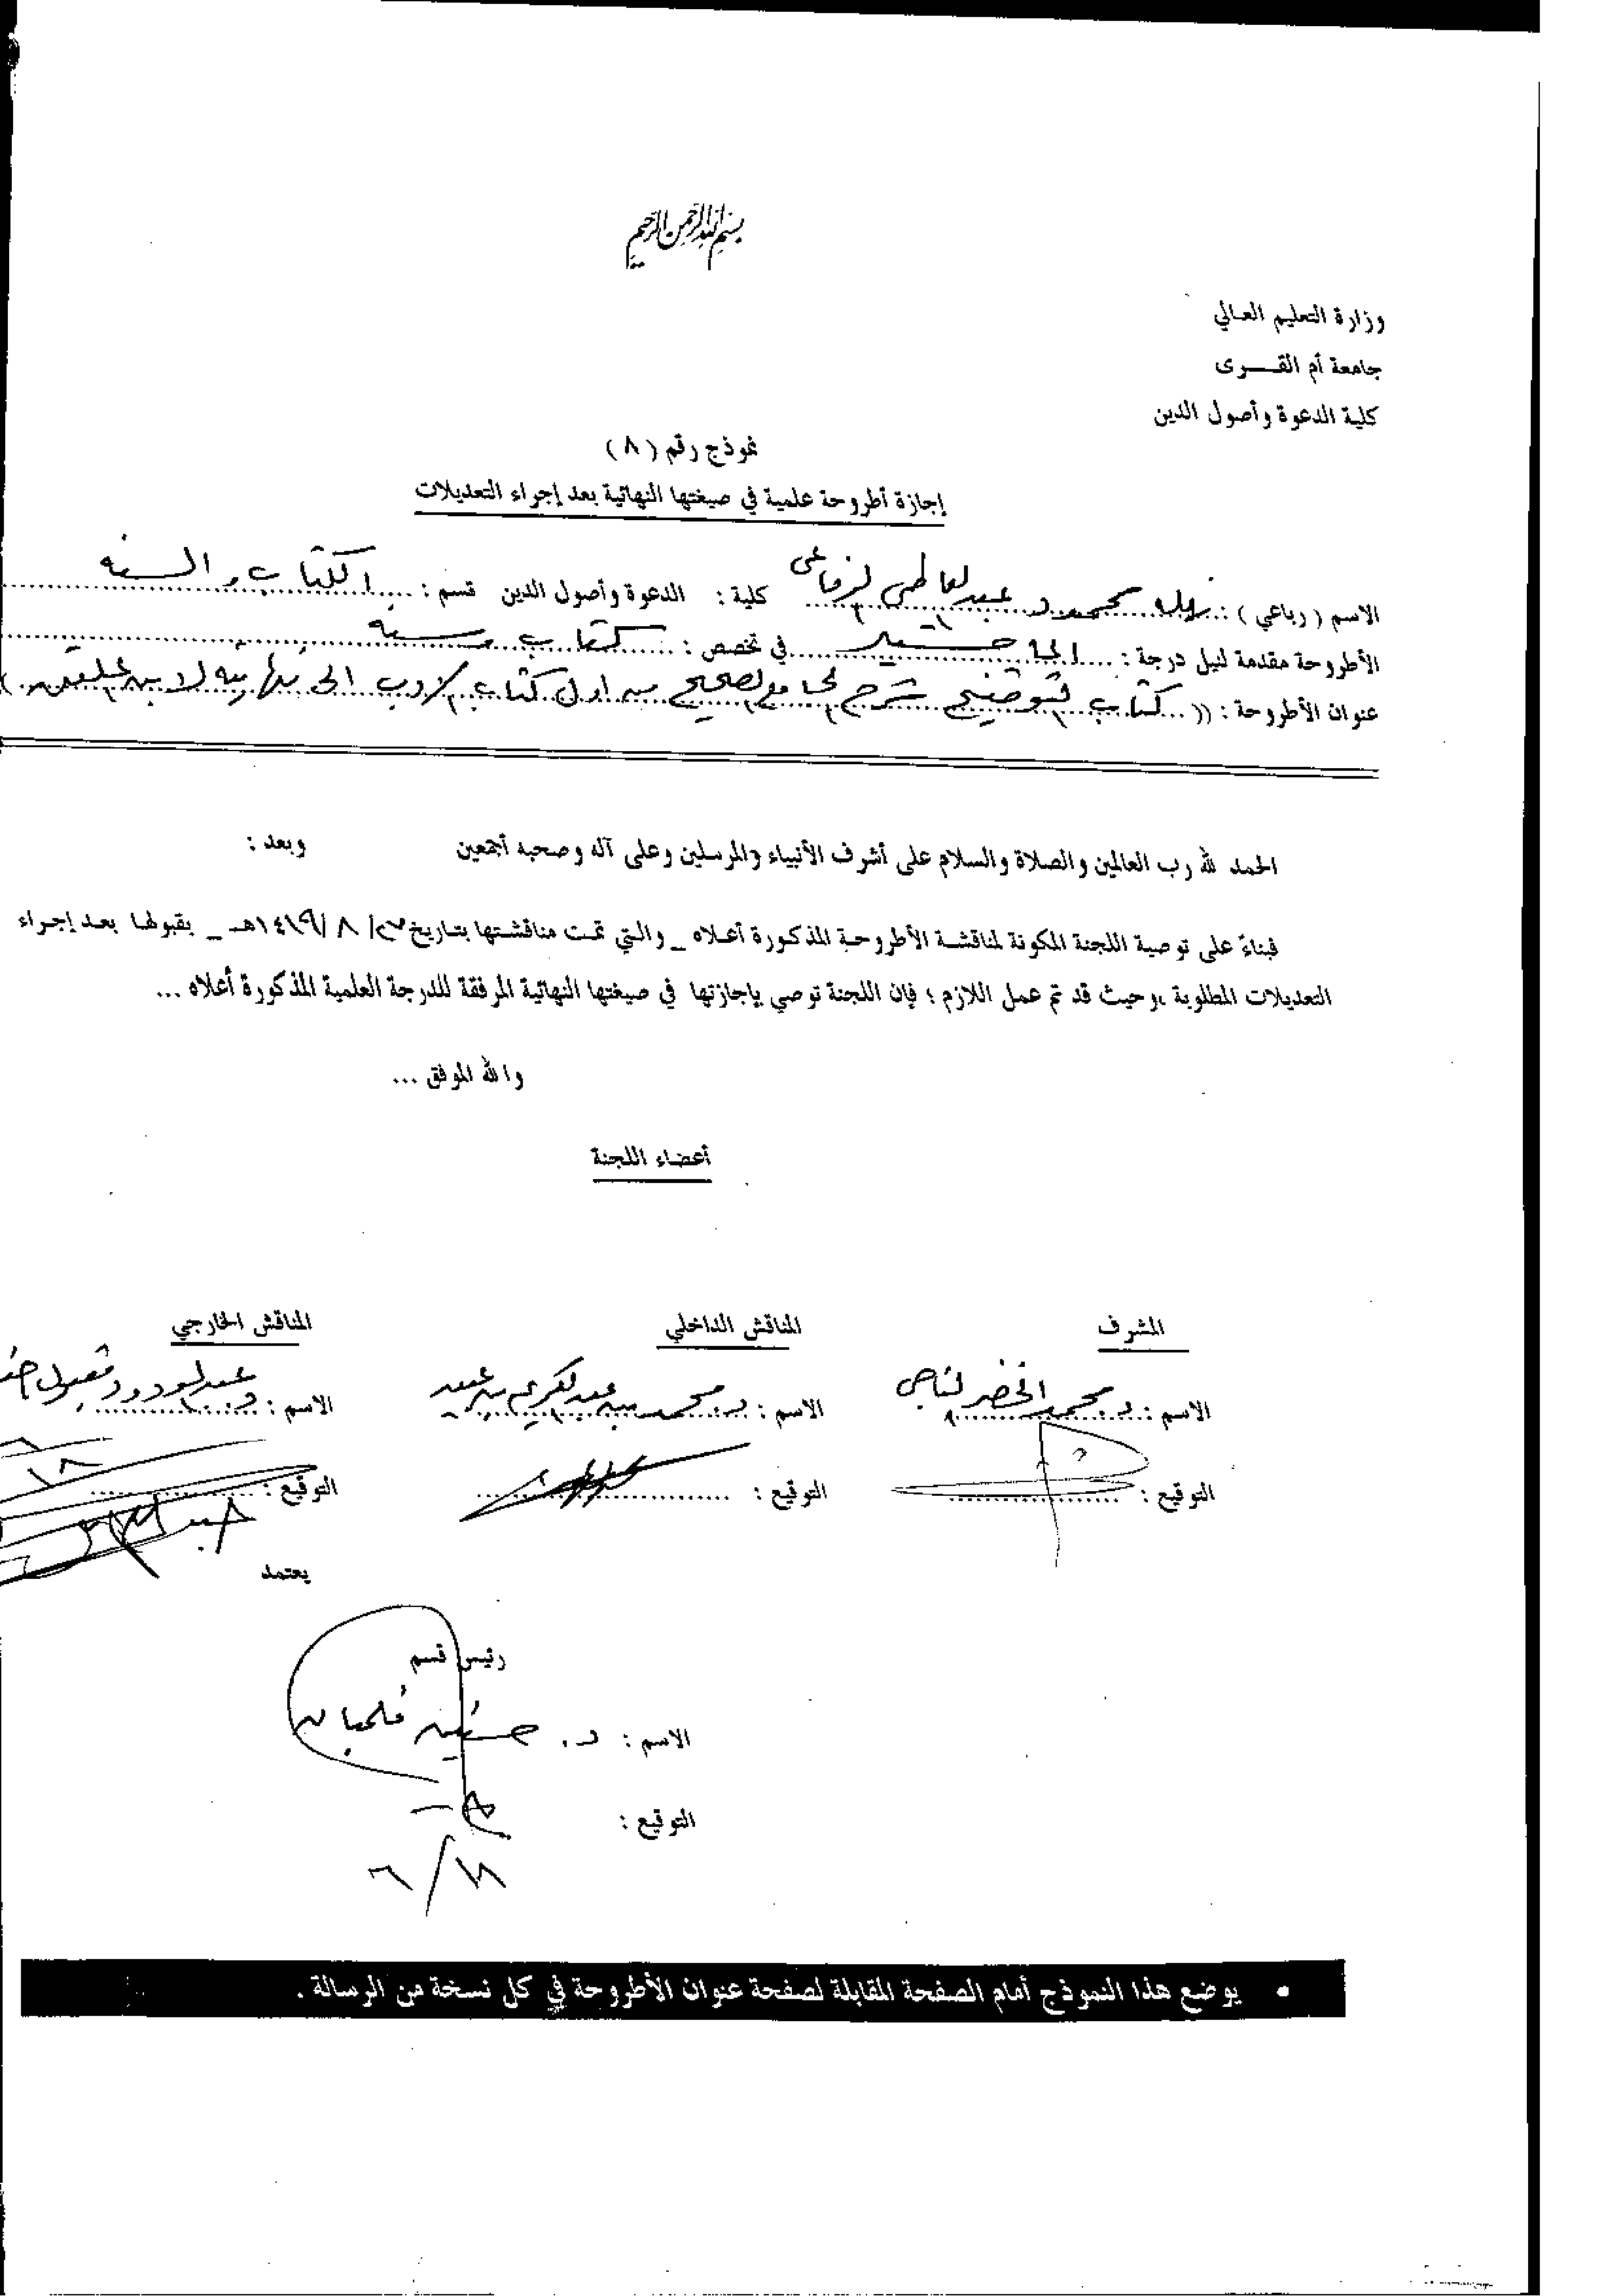 بسم الله الرحمن الرحيم
وزارة التعليم العالي
جامعة أم القــــرى
كلية الدعوة وأصول الدين
نموذج رقم ( ٨ )
إجازة أطروحة علمية في صيغتها النهائية بعد إجراء التعديلات
الاسم ( رباعي ) : محمود عبدالعاطي الرفاعي كلية : الدعوة وأصول الدين قسم : الكتاب والسنه
الأطروحة مقدمة لنيل درجة : الماجستير في تخصص : كتاب وسنه
عنوان الأطروحة : (( كتاب التوضيح شرح الجامع الصحيح من اول كتاب الادب الى نهايته لابن الملقن )
الحمد لله رب العالمين والصلاة والسلام على أشرف الأنبياء والمرسلين وعلى آله وصحبه أجمعين وبعد :
فبناءً على توصية اللجنة المكونة لمناقشة الأطروحة المذكورة أعلاه _ والتي تمت مناقشتها بتاريخ / ٨ /١٤١٩هـ _ بقبولها بعد إجراء
التعديلات المطلوبة ،وحيث قد تم عمل اللازم ؛ فإن اللجنة توصي بإجازتها في صيغتها النهائية المرفقة للدرجة العلمية المذكورة أعلاه ...
والله الموفق ...
أعضاء اللجنة
المشرف المناقش الداخلي المناقش الخارجي
الاسم : د. محمد الخضر الناجي الاسم : د. محمد بن عبدالكريم بن عبيد الاسم : د. عبدالودود مقبول
التوقيع : التوقيع : التوقيع :
يعتمد
رئيس قسم
الاسم : د. حسين فلمبان
التوقيع :
١٨ / ٦
• يوضع هذا النموذج أمام الصفحة المقابلة لصفحة عنوان الأطروحة في كل نسخة من الرسالة .